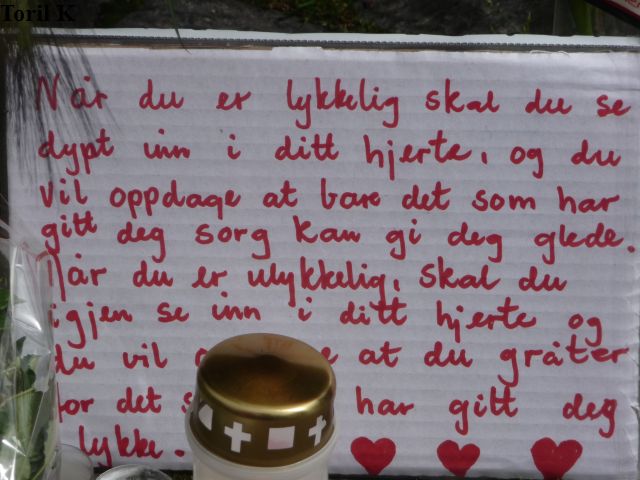 Toril K
Når du er lykkelig skal du se
dypt inn i ditt hjerte, og du
vil oppdage at bare det som har
gitt deg sorg kan gi deg glede.
Når du er ulykkelig, skal du
igjen se inn i ditt hjerte og
du vil at du gråter
for det har gitt deg
lykke.